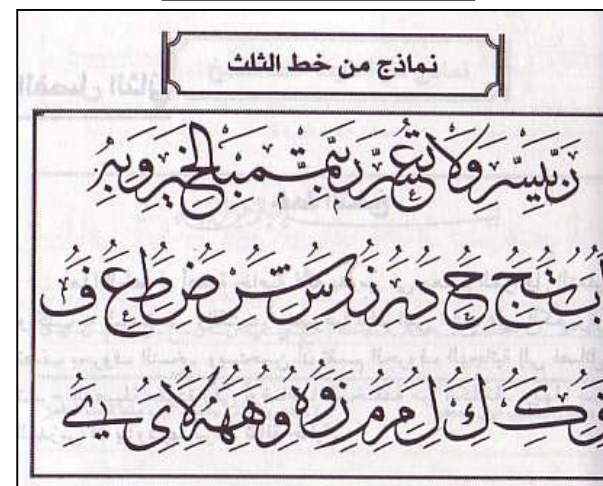 نماذج من خط الثلث
رب يسر ولا تعسر رب تمم بالخير وبه
أ ب ت ج ح د ر ز س ش ض ط ع ف
ق ك ك ل م م ن و ه و ه ه لا ي ي